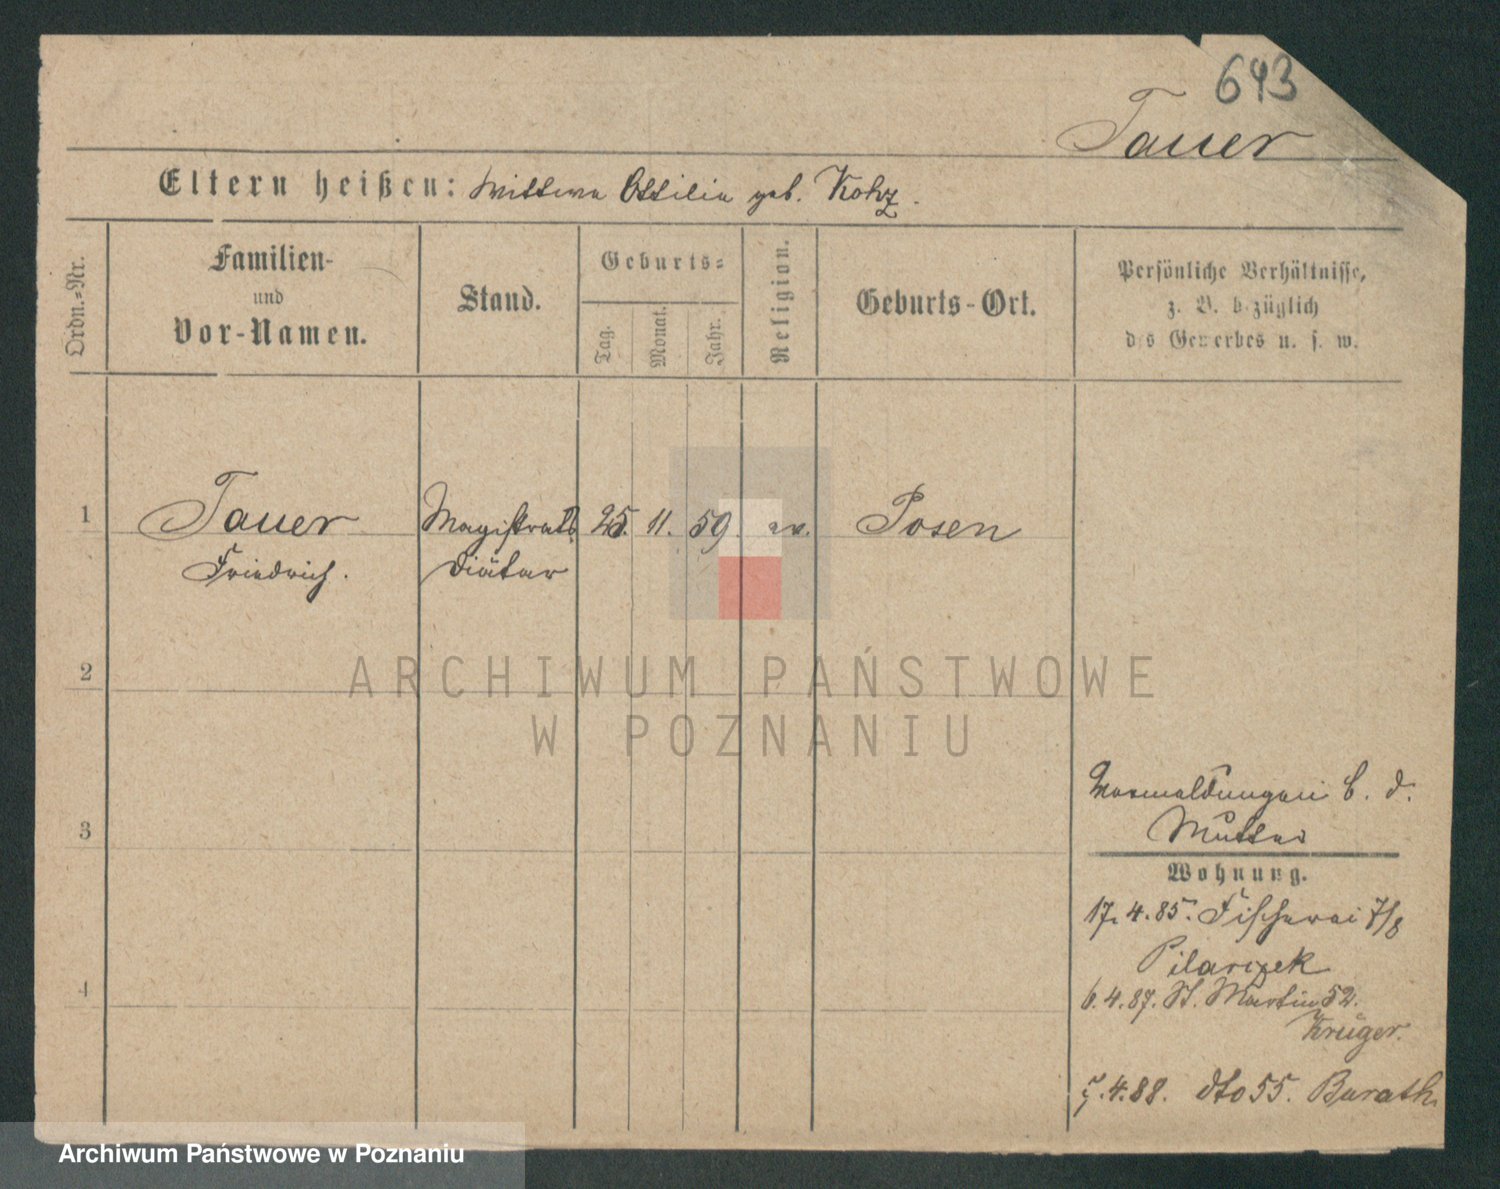 643
Tauer
Eltern heißen: Wittwe Ottilie geb. Kotz.
Ordn.=Nr.
Familien-
und
Vor-Namen.
Stand.
Geburts=
Tag.
Monat.
Jahr.
Religion.
Geburts-Ort.
Persönliche Verhältnisse,
z. B. bezüglich
des Gewerbes u. s. w.
1 Tauer Magistrats 25. 11. 59. ev. Posen
Friedrich. Diätar
2
ARCHIWUM PAŃSTWOWE
W POZNANIU
3
4
Vormeldungen b. d.
Mutter
Wohnung.
17. 4. 85. Fischerei 7/8
Pilarczek
6. 4. 87. St. Martin 52.
Krüger.
5. 4. 88. dto 55. Barath.
Archiwum Państwowe w Poznaniu